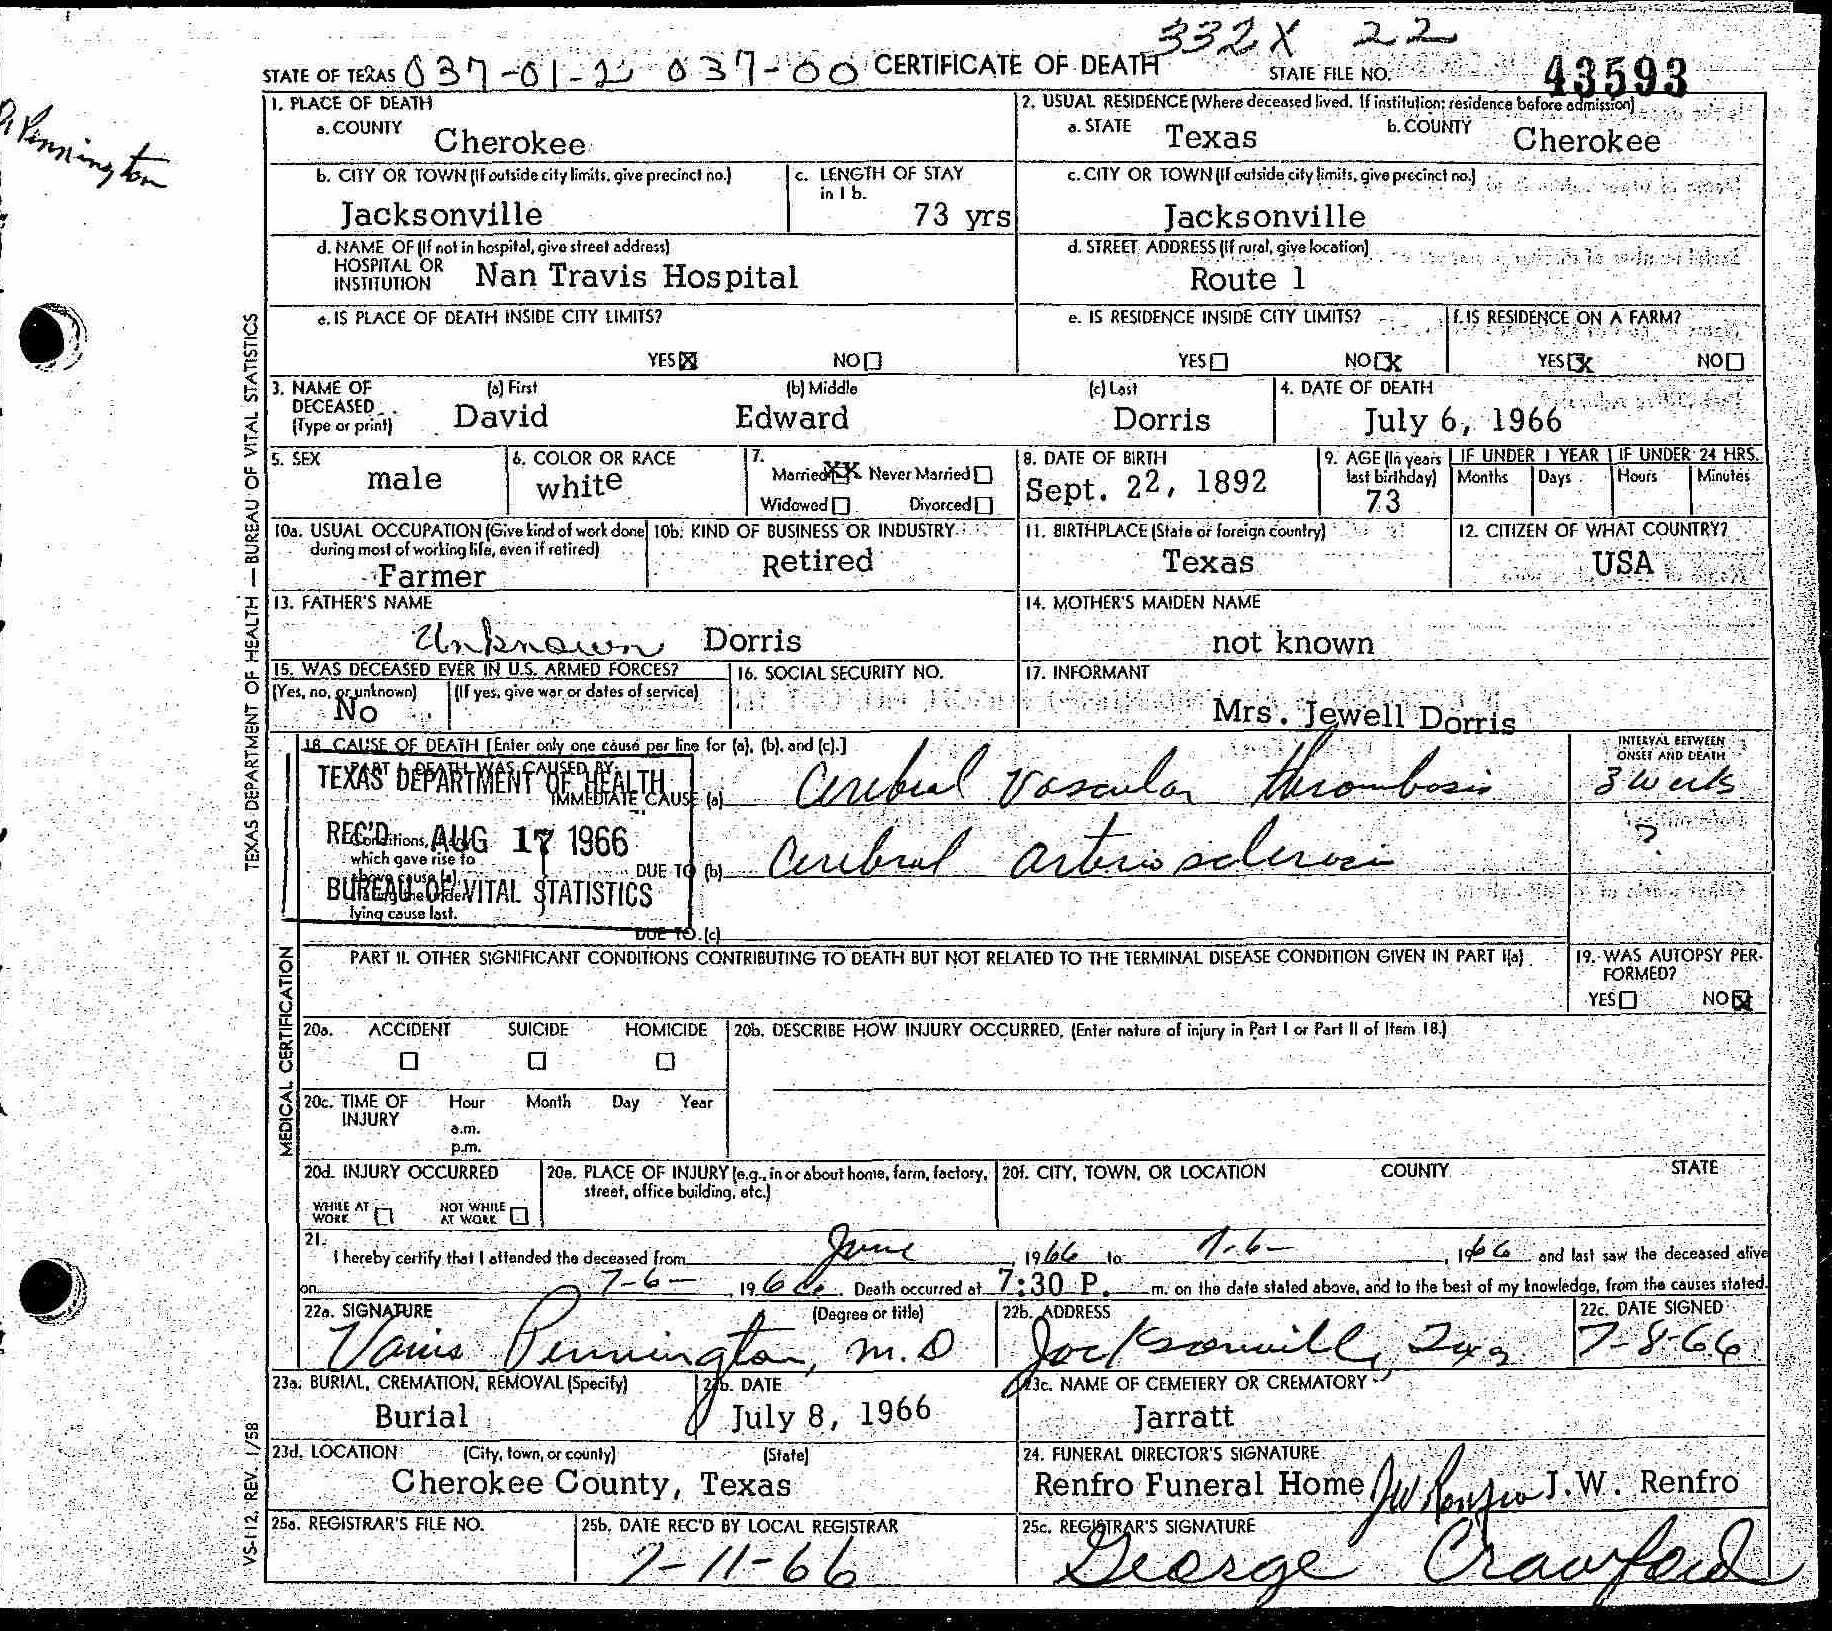 332X 22
STATE OF TEXAS 037-01-2 037-00 CERTIFICATE OF DEATH STATE FILE NO. 43593
Pennington
1. PLACE OF DEATH
a. COUNTY Cherokee
2. USUAL RESIDENCE (Where deceased lived. If institution: residence before admission)
a. STATE Texas b. COUNTY Cherokee
b. CITY OR TOWN (If outside city limits, give precinct no.)
Jacksonville
c. LENGTH OF STAY
in 1 b.
73 yrs
c. CITY OR TOWN (If outside city limits, give precinct no.)
Jacksonville
d. NAME OF (If not in hospital, give street address)
HOSPITAL OR
INSTITUTION Nan Travis Hospital
d. STREET ADDRESS (If rural, give location)
Route 1
e. IS PLACE OF DEATH INSIDE CITY LIMITS?
YES X NO
e. IS RESIDENCE INSIDE CITY LIMITS?
YES NO X
f. IS RESIDENCE ON A FARM?
YES X NO
3. NAME OF
DECEASED
(Type or print)
(a) First David
(b) Middle Edward
(c) Last Dorris
4. DATE OF DEATH
July 6, 1966
5. SEX
male
6. COLOR OR RACE
white
7.
Married XX Never Married
Widowed Divorced
8. DATE OF BIRTH
Sept. 22, 1892
9. AGE (In years
last birthday)
73
IF UNDER 1 YEAR IF UNDER 24 HRS.
Months Days Hours Minutes
10a. USUAL OCCUPATION (Give kind of work done
during most of working life, even if retired)
Farmer
10b. KIND OF BUSINESS OR INDUSTRY
Retired
11. BIRTHPLACE (State or foreign country)
Texas
12. CITIZEN OF WHAT COUNTRY?
USA
13. FATHER'S NAME
Unknown Dorris
14. MOTHER'S MAIDEN NAME
not known
15. WAS DECEASED EVER IN U.S. ARMED FORCES?
(Yes, no, or unknown) (If yes, give war or dates of service)
No
16. SOCIAL SECURITY NO.
17. INFORMANT
Mrs. Jewell Dorris
18. CAUSE OF DEATH [Enter only one cause per line for (a), (b), and (c).]
INTERVAL BETWEEN
ONSET AND DEATH
PART I. DEATH WAS CAUSED BY:
TEXAS DEPARTMENT OF HEALTH
IMMEDIATE CAUSE (a) Cerebral Vascular thrombosis 3 weeks
REC'D AUG 17 1966
Conditions, if any,
which gave rise to
above cause (a)
DUE TO (b) Cerebral arteriosclerosis ?
BUREAU OF VITAL STATISTICS
lying cause last.
DUE TO (c)
PART II. OTHER SIGNIFICANT CONDITIONS CONTRIBUTING TO DEATH BUT NOT RELATED TO THE TERMINAL DISEASE CONDITION GIVEN IN PART I(a)
19. WAS AUTOPSY PER-
FORMED?
YES NO X
20a. ACCIDENT SUICIDE HOMICIDE
20b. DESCRIBE HOW INJURY OCCURRED. (Enter nature of injury in Part I or Part II of Item 18.)
20c. TIME OF
INJURY
Hour Month Day Year
a.m.
p.m.
20d. INJURY OCCURRED
WHILE AT
WORK
NOT WHILE
AT WORK
20e. PLACE OF INJURY (e.g., in or about home, farm, factory,
street, office building, etc.)
20f. CITY, TOWN, OR LOCATION COUNTY STATE
21.
I hereby certify that I attended the deceased from June, 1966 to 7-6-, 1966 and last saw the deceased alive
on 7-6-, 1966. Death occurred at 7:30 P. m. on the date stated above, and to the best of my knowledge, from the causes stated.
22a. SIGNATURE (Degree or title)
Pennington, M.D
22b. ADDRESS
Jacksonville, Texas
22c. DATE SIGNED
7-8-66
23a. BURIAL, CREMATION, REMOVAL (Specify)
Burial
23b. DATE
July 8, 1966
23c. NAME OF CEMETERY OR CREMATORY
Jarratt
23d. LOCATION (City, town, or county) (State)
Cherokee County, Texas
24. FUNERAL DIRECTOR'S SIGNATURE
Renfro Funeral Home JW Renfro J.W. Renfro
25a. REGISTRAR'S FILE NO.
25b. DATE REC'D BY LOCAL REGISTRAR
7-11-66
25c. REGISTRAR'S SIGNATURE
George Crawford
TEXAS DEPARTMENT OF HEALTH — BUREAU OF VITAL STATISTICS
MEDICAL CERTIFICATION
VS-112, REV. 1/58